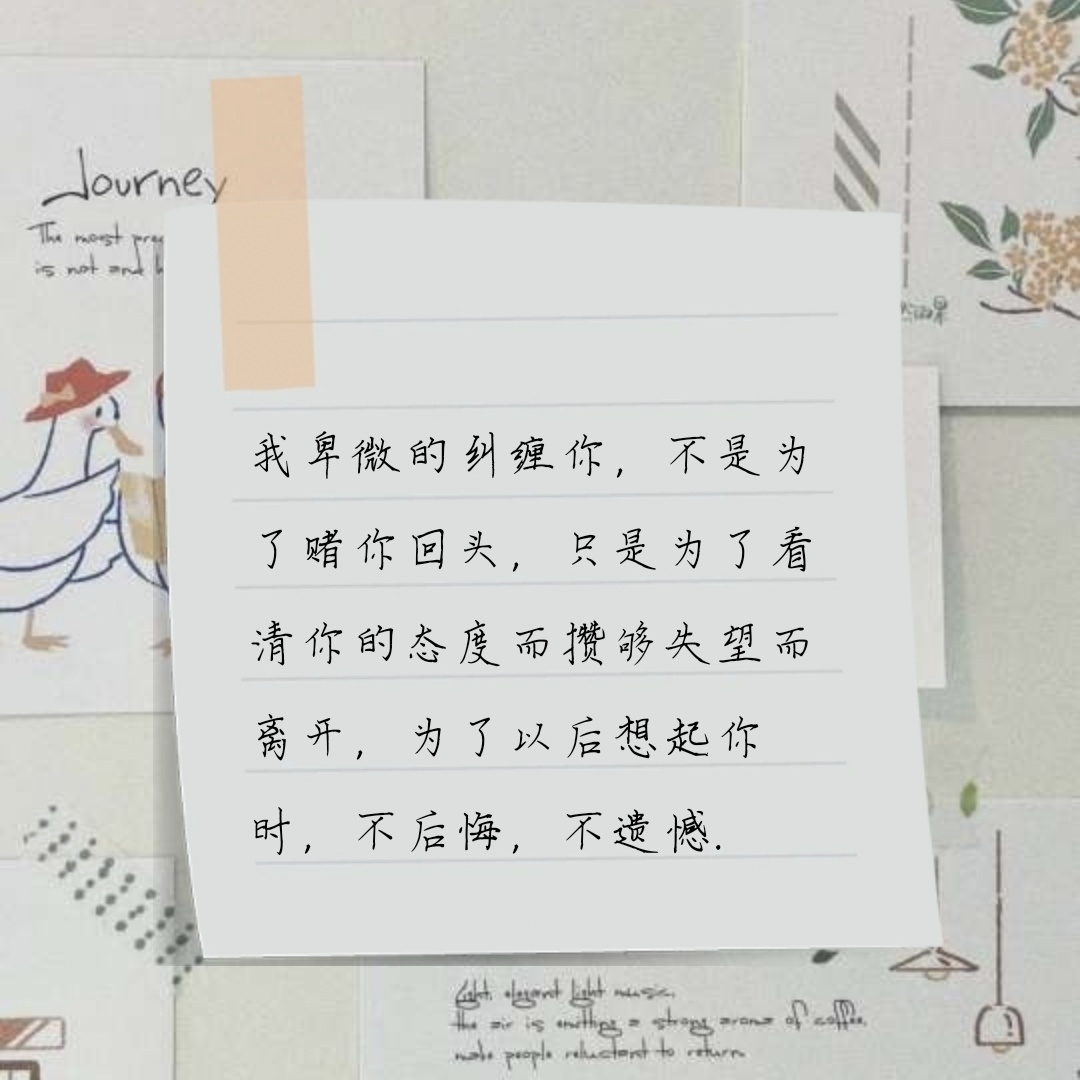 Journey
The most pre
is not and h
我卑微的纠缠你，不是为
了赌你回头，只是为了看
清你的态度而攒够失望而
离开，为了以后想起你
时，不后悔，不遗憾.
Light, elegant light music,
the air is emitting a strong aroma of coffee,
make people reluctant to return